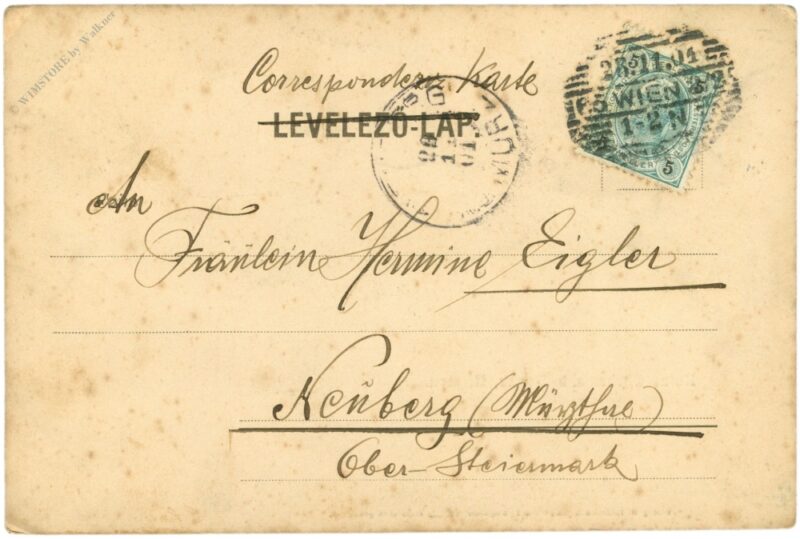 © WIMSTORE by Walkner
Correspondenz Karte
LEVELEZŐ-LAP.
28.11.01
WIEN
1-2 N
5
5
29
11
01
MÜRZ
An
Fräulein Hermine Eigler
Neüberg (Mürzthal)
Ober-Steiermark